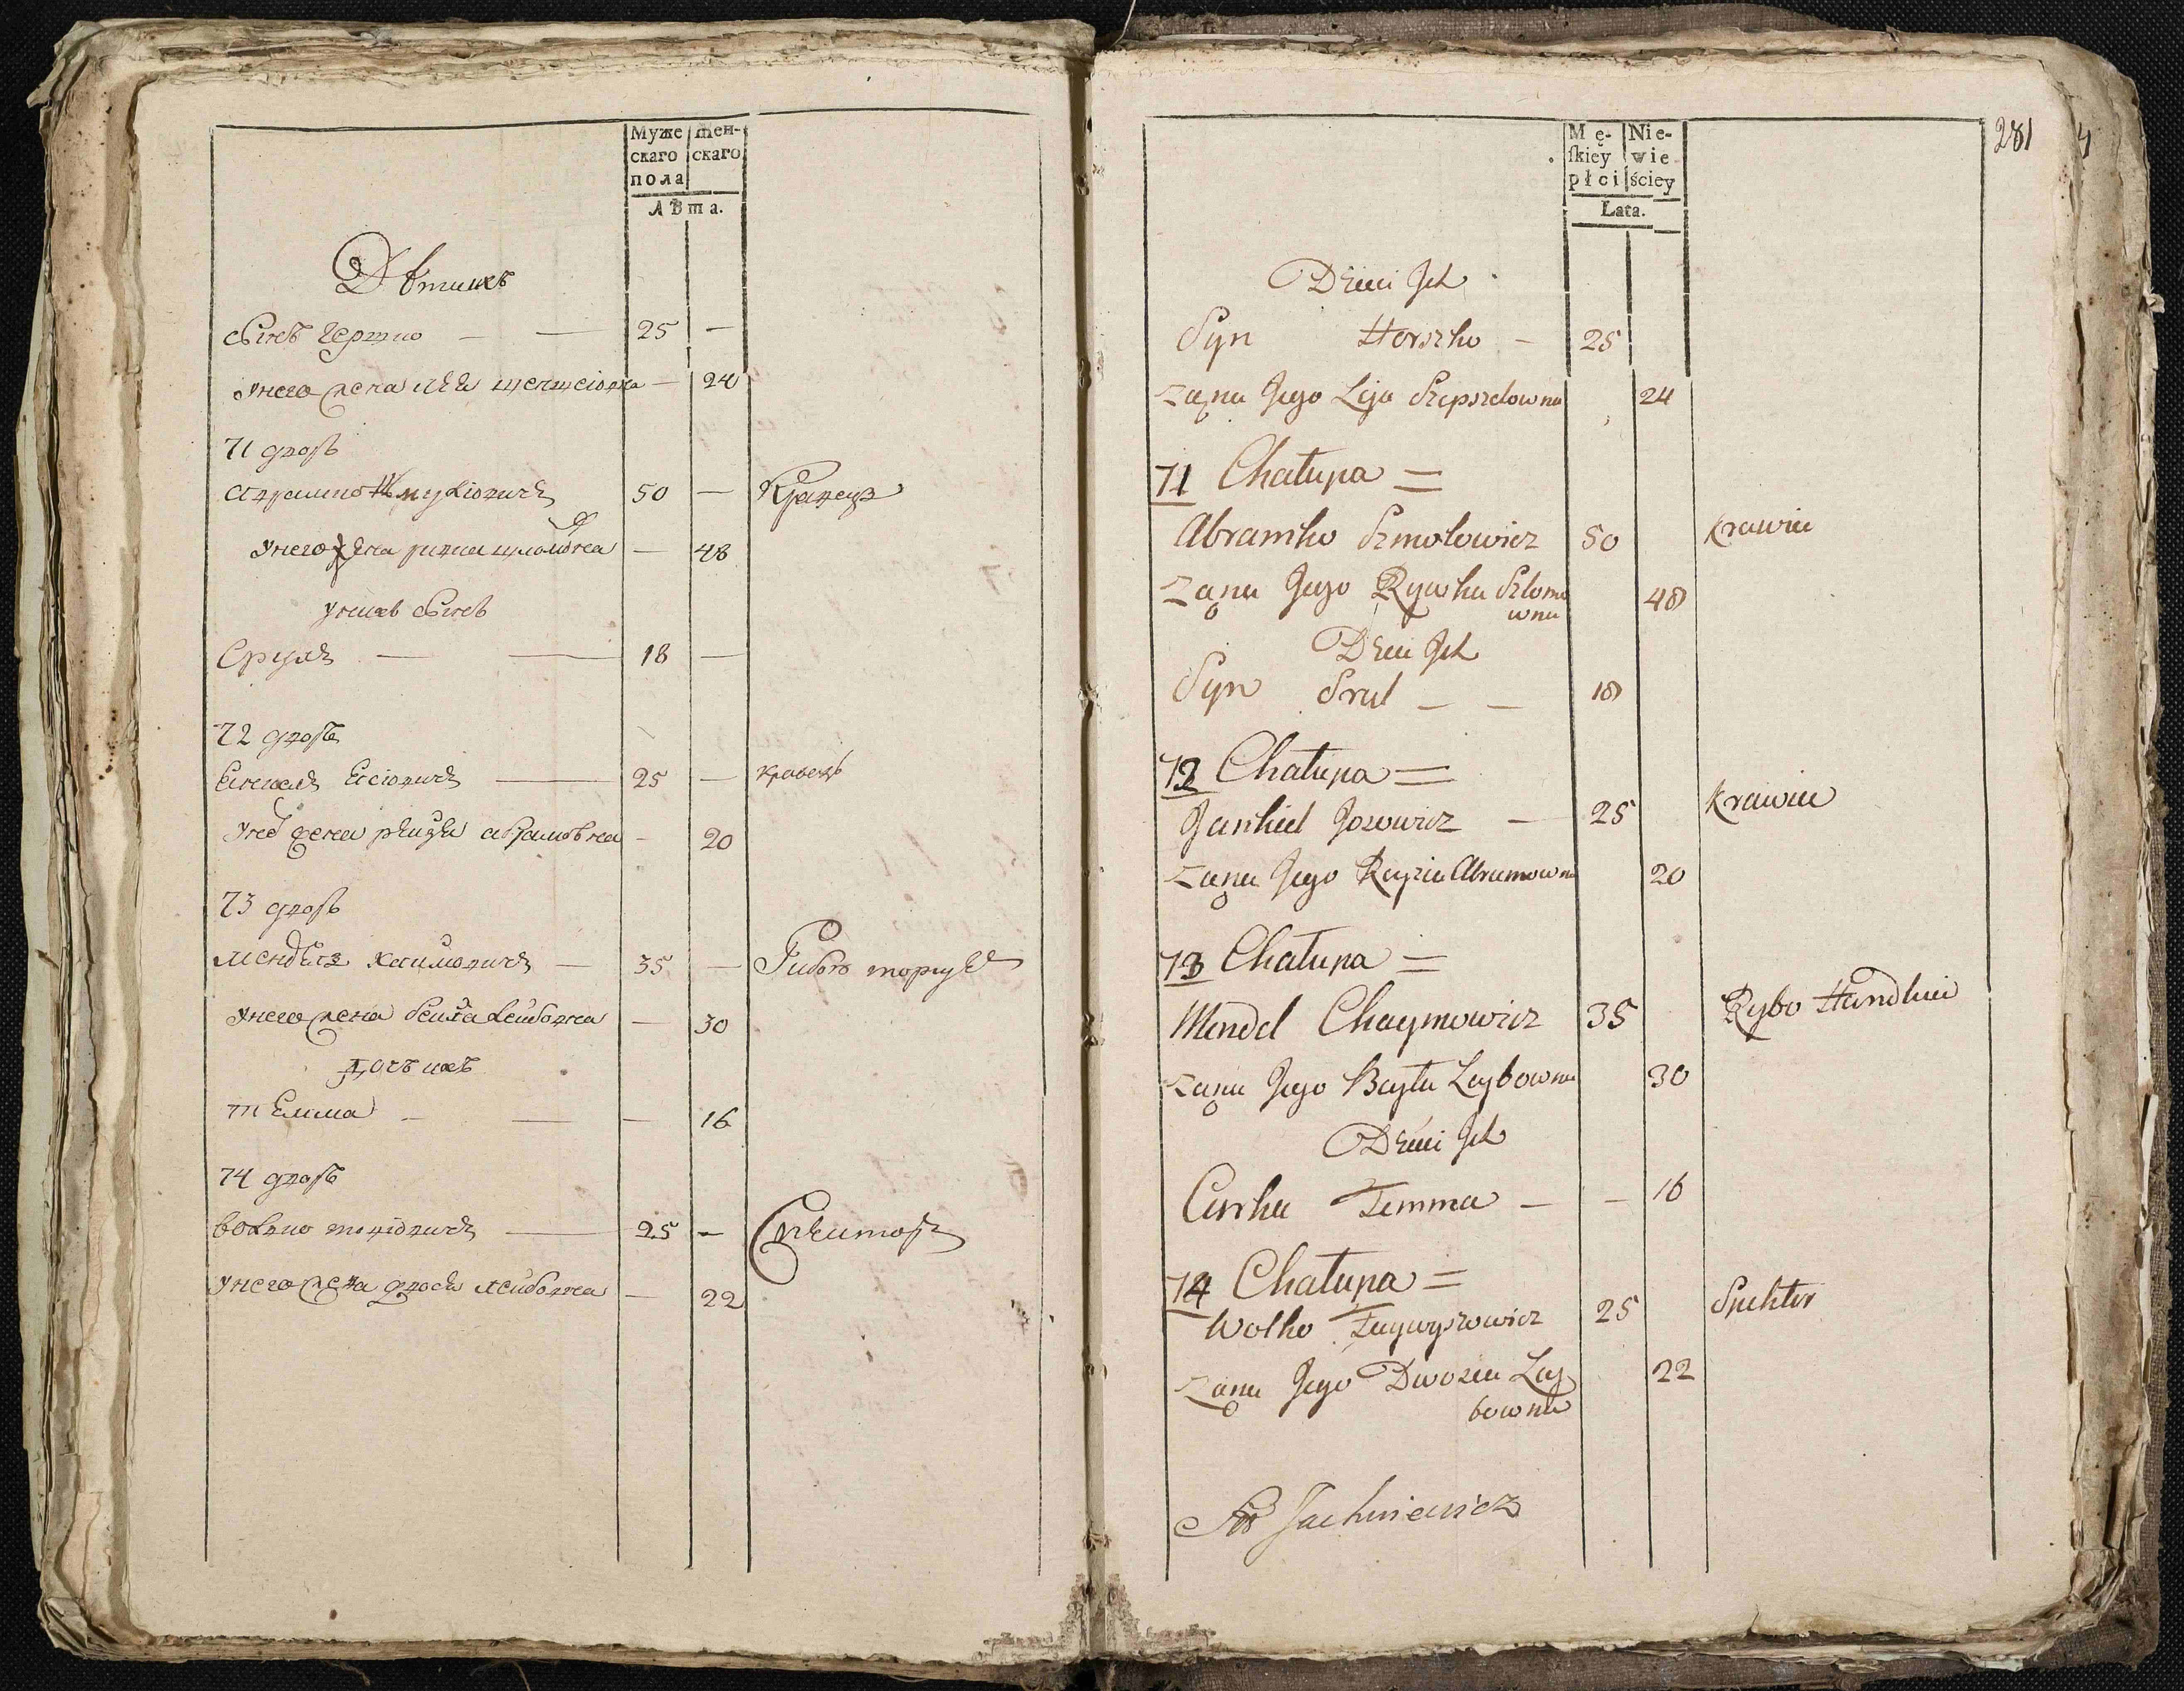 Муже
скаго
пола
жен-
скаго
лѣта.
Дѣти ихъ
Сынъ Гершко — — 25 —
у него жена лея — 24
71 дворъ
Абрамко Шмулiовичъ 50 — Кравецъ
у него жена ривка шломовна — 48
у нихъ Сынъ
Сруль — — 18 —
72 дворъ
Енкель Есiовичъ — 25 — кравецъ
у нево жена рейзя абрамовна — 20
73 дворъ
Мендель хаимовичъ — 35 — Рибою торгуе
у него жена бейла лейбовна — 30
дочь ихъ
темма — — — 16
74 дворъ
волко — 25 — Спекторъ
у него жена двося лейбовна — 22
281
Mę-
skiey
płci
Nie-
wie
ściey
Lata.
Dzieci Ich
Syn Horszko — 25
Zona Jego Leja Szepszelowna 24
71 Chałupa =
Abramko Szmolowicz 50 Krawiec
Zona Jego Rywka Szlomo
wna 48
Dzieci Ich
Syn Srul — — 18
72 Chałupa =
Jankiel Josiowicz — 25 Krawiec
Zona Jego Rayzia Abramowna 20
73 Chałupa =
Mendel Chaymowicz 35 Rybo Handluie
Zona Jego Bayła Leybowna 30
Dzieci Ich
Curka Temma — — 16
74 Chałupa =
Wolko 25 Spektor
Zona Jego Dwosia Ley
bowna 22
Jachniewicz